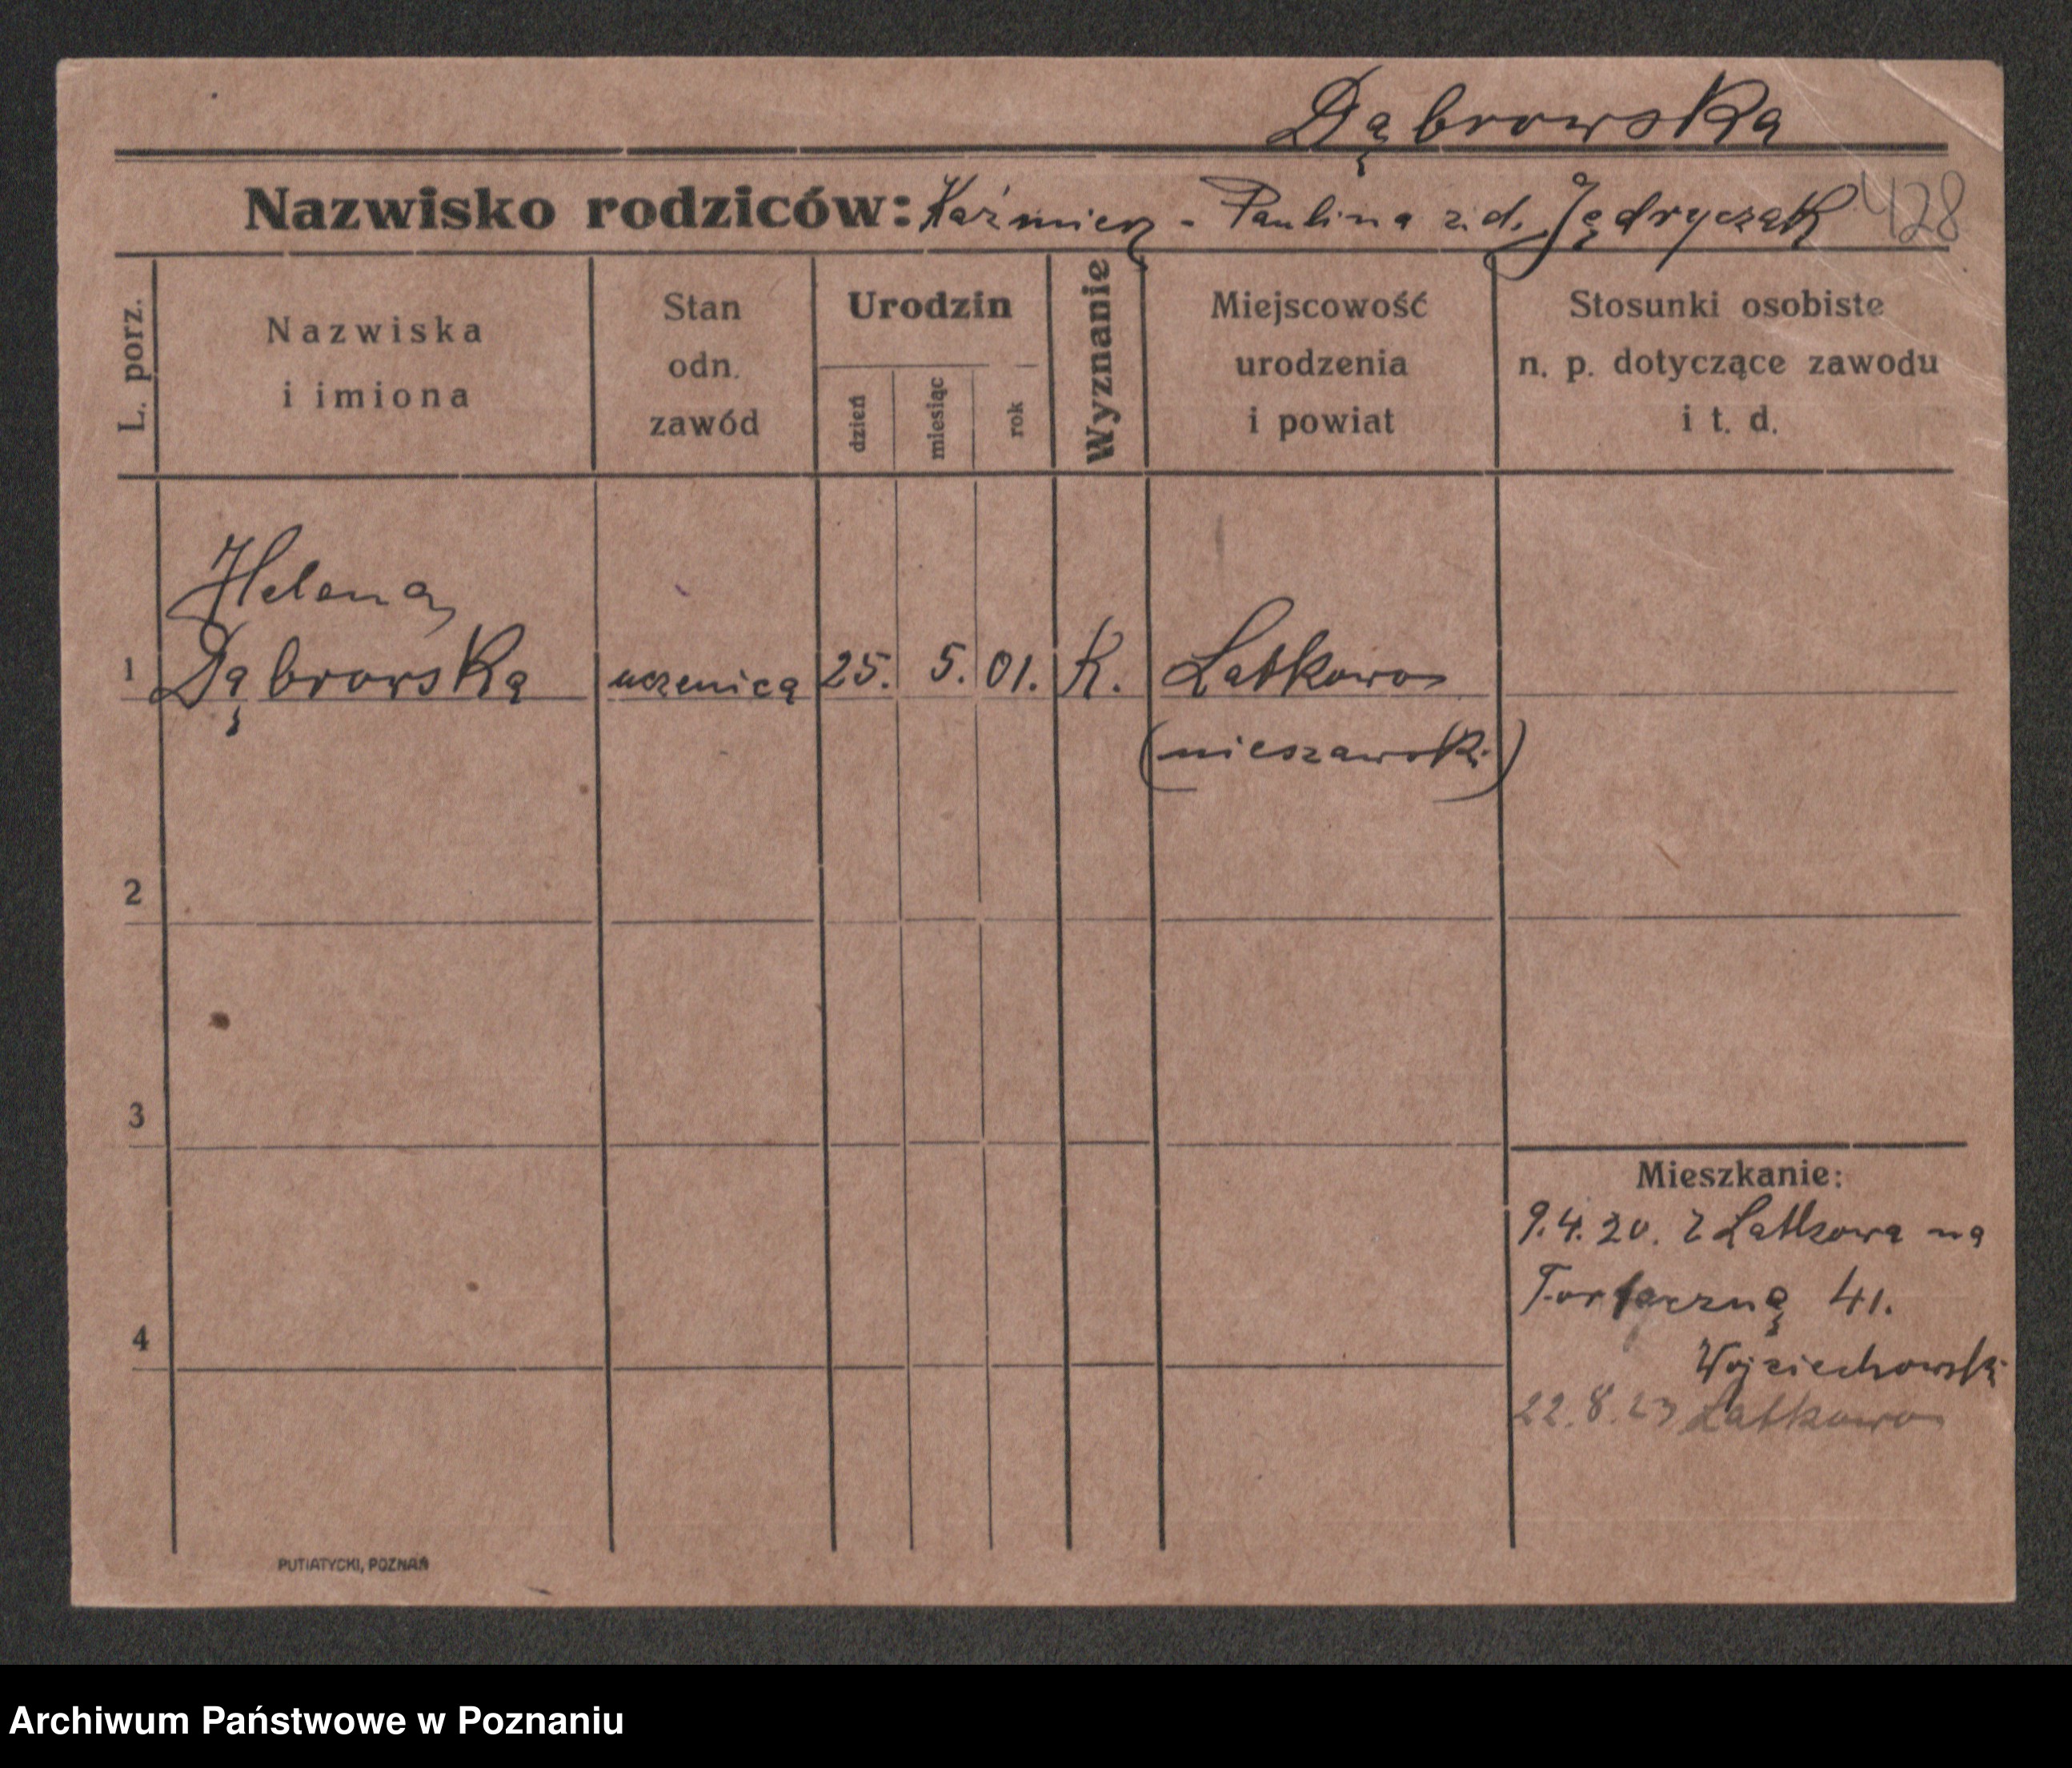 Dąbrowska
Nazwisko rodziców: Kaźmierz - Paulina z.d. Jędryczak 428
L. porz.
Nazwiska
i imiona
Stan
odn.
zawód
Urodzin
dzień
miesiąc
rok
Wyznanie
Miejscowość
urodzenia
i powiat
Stosunki osobiste
n. p. dotyczące zawodu
i t. d.
Helena
1 Dąbrowska uczenica 25. 5. 01. K. Latkowo
(nieszawski)
2
3
4
Mieszkanie:
9.4.20. z Latkowa na
Forteczną 41.
Wojciechowski
22.8.23 Latkowo
PUTIATYCKI, POZNAŃ
Archiwum Państwowe w Poznaniu